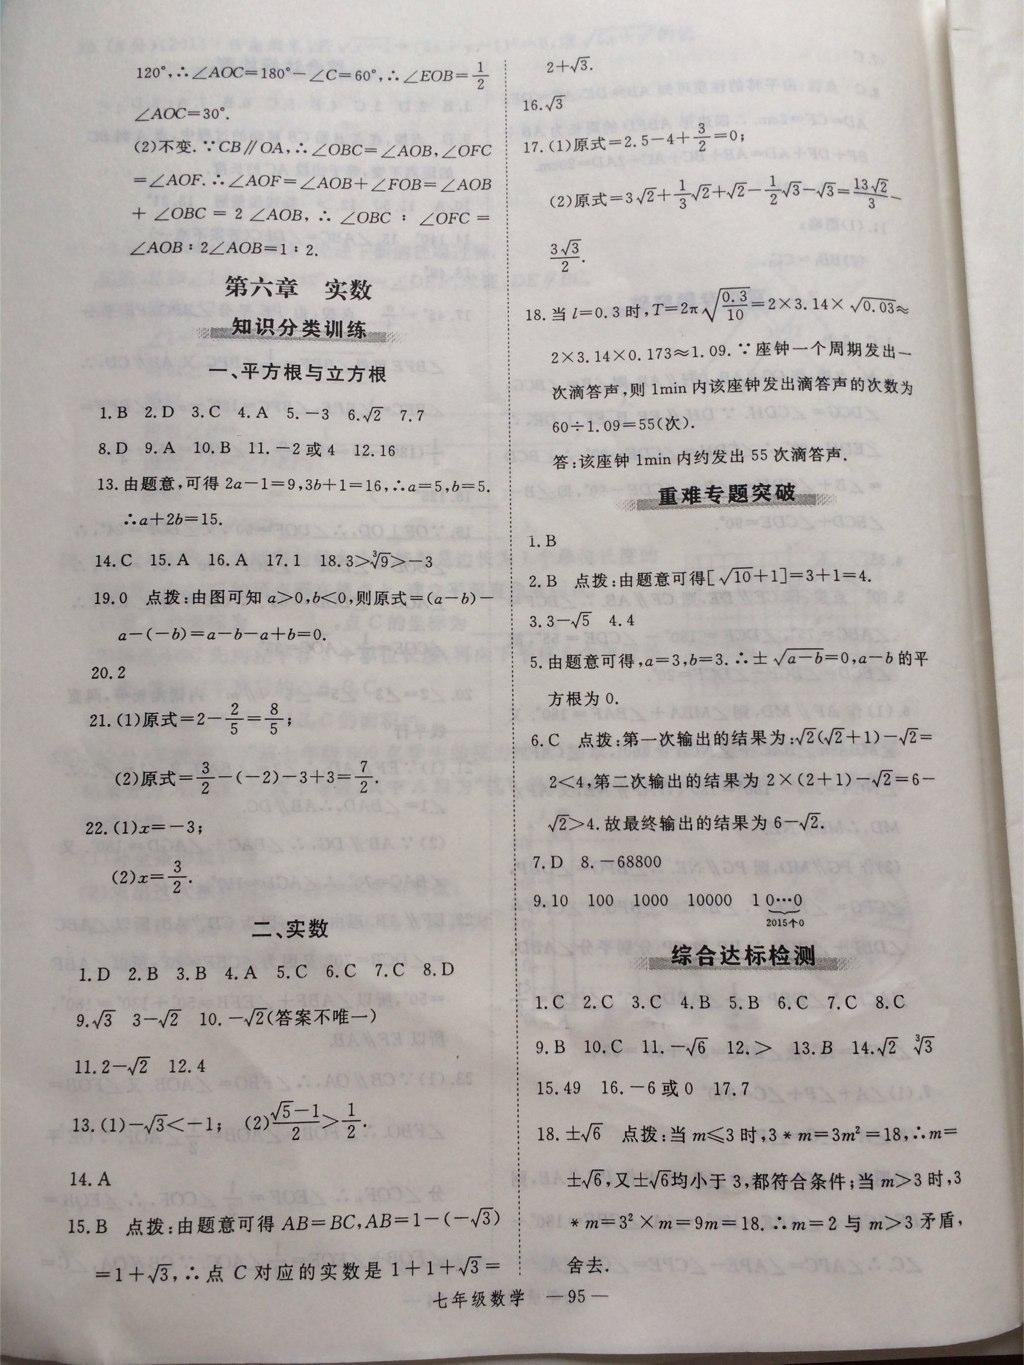 120°,∴∠AOC=180°-∠C=60°,∴∠EOB=1/2
∠AOC=30°.
(2)不变.∵CB∥OA,∴∠OBC=∠AOB,∠OFC
=∠AOF.∴∠AOF=∠AOB+∠FOB=∠AOB
+∠OBC=2∠AOB,∴∠OBC∶∠OFC=
∠AOB∶2∠AOB=1∶2.
第六章 实数
知识分类训练
一、平方根与立方根
1.B 2.D 3.C 4.A 5.-3 6.√2 7.7
8.D 9.A 10.B 11.-2或4 12.16
13.由题意,可得2a-1=9,3b+1=16,∴a=5,b=5.
∴a+2b=15.
14.C 15.A 16.A 17.1 18.3>∛9>-3
19.0 点拨:由图可知a>0,b<0,则原式=(a-b)-
a-(-b)=a-b-a+b=0.
20.2
21.(1)原式=2-2/5=8/5;
(2)原式=3/2-(-2)-3+3=7/2.
22.(1)x=-3;
(2)x=3/2.
二、实数
1.D 2.B 3.B 4.A 5.C 6.C 7.C 8.D
9.√3 3-√2 10.-√2(答案不唯一)
11.2-√2 12.4
13.(1)-√3<-1; (2)(√5-1)/2>1/2.
14.A
15.B 点拨:由题意可得AB=BC,AB=1-(-√3)
=1+√3,∴点C对应的实数是1+1+√3=
2+√3.
16.√3
17.(1)原式=2.5-4+3/2=0;
(2)原式=3√2+1/3√2+√2-1/2√3-√3=13√2/3-
3√3/2.
18.当l=0.3时,T=2π√(0.3/10)=2×3.14×√0.03≈
2×3.14×0.173≈1.09.∵座钟一个周期发出一
次滴答声,则1min内该座钟发出滴答声的次数为
60÷1.09=55(次).
答:该座钟1min内约发出55次滴答声.
重难专题突破
1.B
2.B 点拨:由题意可得[√10+1]=3+1=4.
3.3-√5 4.4
5.由题意可得,a=3,b=3.∴±√(a-b)=0,a-b的平
方根为0.
6.C 点拨:第一次输出的结果为:√2(√2+1)-√2=
2<4,第二次输出的结果为2×(2+1)-√2=6-
√2>4.故最终输出的结果为6-√2.
7.D 8.-68800
9.10 100 1000 10000 1 0…0
2015个0
综合达标检测
1.C 2.C 3.C 4.B 5.B 6.C 7.C 8.C
9.B 10.C 11.-√6 12.> 13.B 14.√2 ∛3
15.49 16.-6或0 17.7
18.±√6 点拨:当m≤3时,3*m=3m²=18,∴m=
±√6,又±√6均小于3,都符合条件;当m>3时,3
*m=3²×m=9m=18.∴m=2与m>3矛盾,
舍去.
七年级数学 —95—